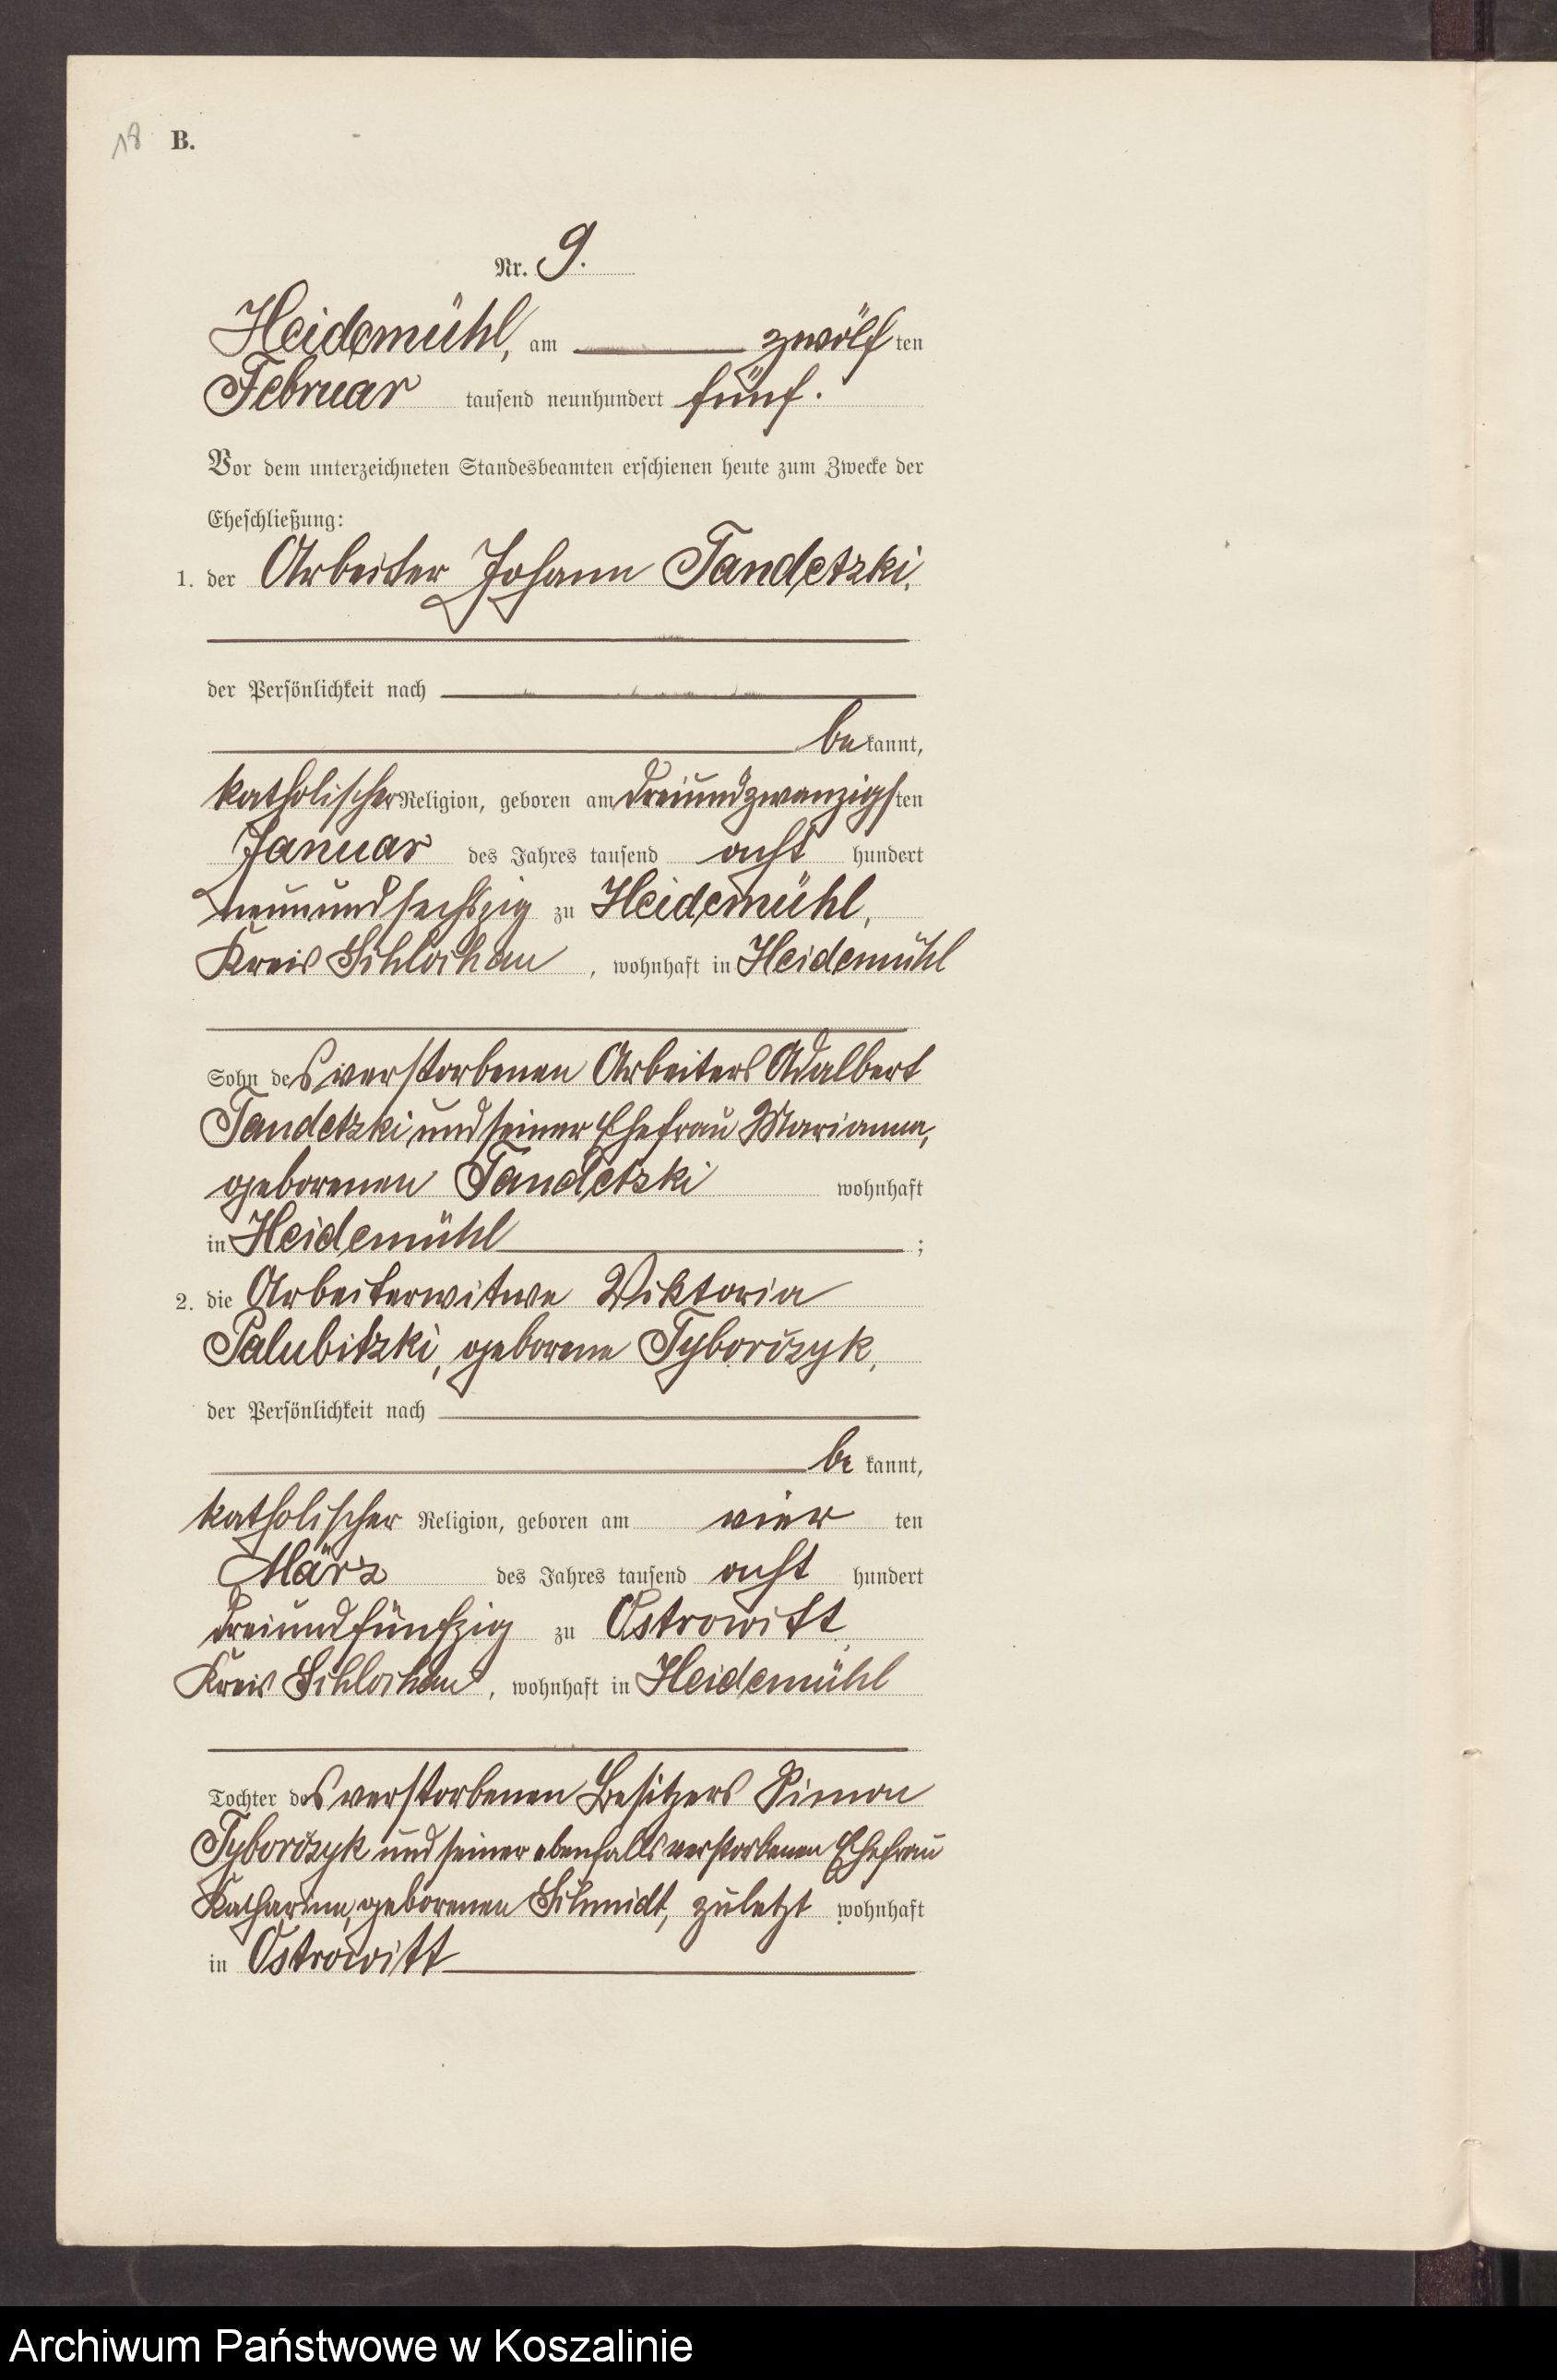 18 B.
Nr. 9.
Heidemühl, am zwölften
Februar tausend neunhundert fünf.
Vor dem unterzeichneten Standesbeamten erschienen heute zum Zwecke der
Eheschließung:
1. der Arbeiter Johann Tandetzki,
der Persönlichkeit nach
bekannt,
katholischer Religion, geboren am dreiundzwanzigsten
Januar des Jahres tausend acht hundert
neunundsechszig zu Heidemühl,
Kreis Schlochau, wohnhaft in Heidemühl
Sohn des verstorbenen Arbeiters Adalbert
Tandetzki und seiner Ehefrau Marianna,
geborenen Tandetzki wohnhaft
in Heidemühl ;
2. die Arbeiterwitwe Viktoria
Palubitzki, geborene Tyborczyk,
der Persönlichkeit nach
be kannt,
katholischer Religion, geboren am vier ten
März des Jahres tausend acht hundert
dreiundfünfzig zu Ostrowitt
Kreis Schlochau, wohnhaft in Heidemühl
Tochter des verstorbenen Besitzers Simon
Tyborczyk und seiner ebenfalls verstorbenen Ehefrau
Katharina, geborenen Schmidt, zuletzt wohnhaft
in Ostrowitt
Archiwum Państwowe w Koszalinie